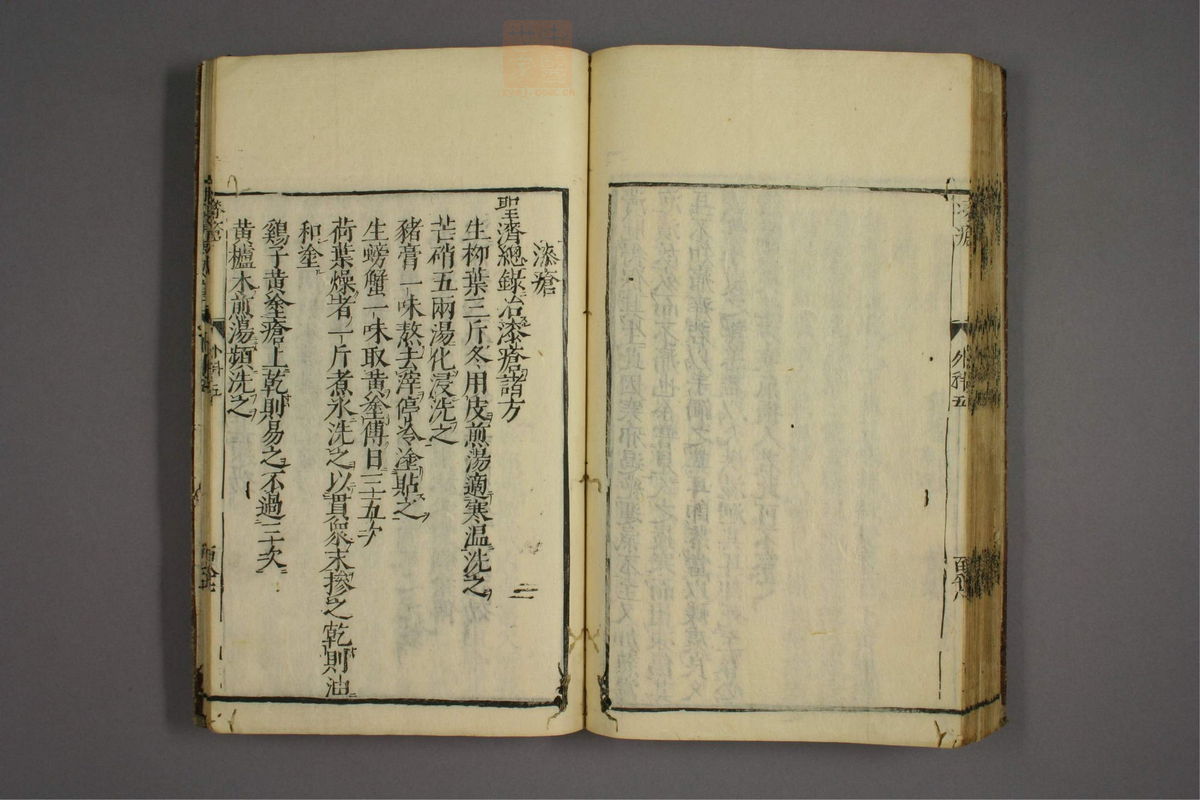 外科五
漆瘡
聖濟總錄治漆瘡諸方
生柳葉三斤冬用皮煎湯適寒温洗之
芒硝五兩湯化浸洗之
豬膏一味熬去滓停冷塗貼之
生螃蟹一味取黄塗傅日三五次
荷葉燥者一斤煮水洗之以貫衆末摻之乾則油
和塗
鷄子黄塗瘡上乾則易之不過三十次
黄櫨木煎湯頻洗之
外科五